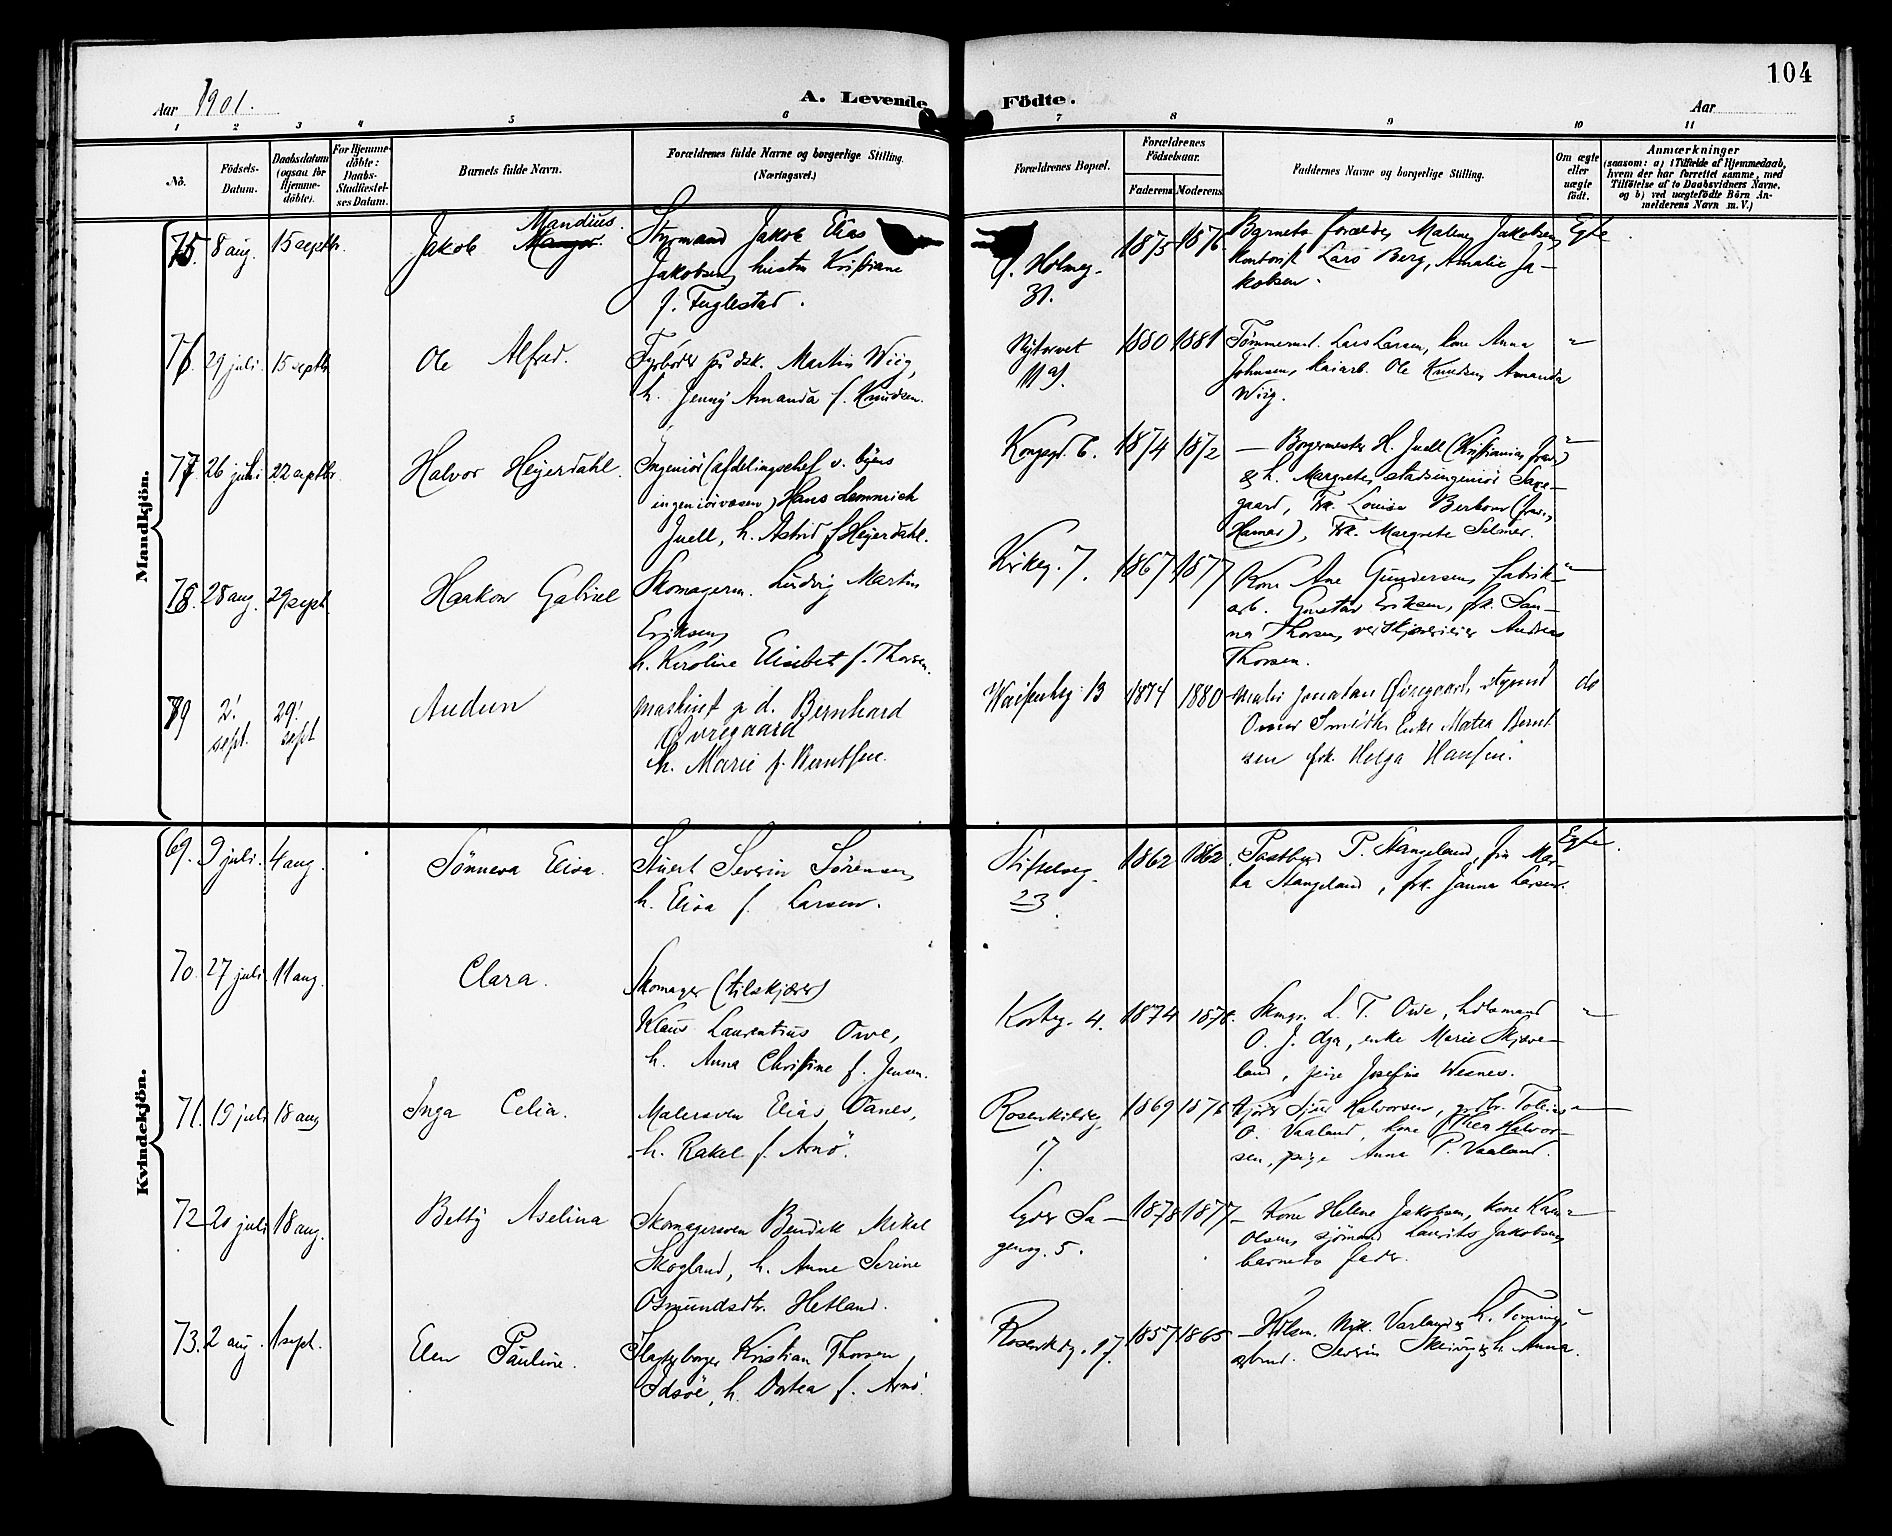 104
Aar 1901.
A. Levende Födte.
Aar
1 2 3 4 5 6 7 8 9 10 11
No.
Födsels-Datum.
Daabsdatum (ogsaa for Hjemme-döbte).
For Hjemme-döbte: Daabs-Stadfæstel-ses Datum.
Barnets fulde Navn.
Forældrenes fulde Navne og borgerlige Stilling. (Næringsvei.)
Forældrenes Bopæl.
Forældrenes Födselsaar.
Faderens Moderens
Faddernes Navne og borgerlige Stilling.
Om ægte eller uægte födt.
Anmærkninger
(saasom: a) i Tilfælde af Hjemmedaab,
hvem der har forrettet samme, med
Tilföielse af to Daabsvidners Navne,
og b) ved uægtefödte Börn An-
melderens Navn m. V.)
Mandkjön.
75. 8 aug. 15 septbr. Jakob Mandius. Styrmand Jakob Elias
Jakobsen, hustru Kristiane
f. Fuglestad.
Holmeg. 31. 1875 1876 Barnets forældre, Malene Jakobsen,
kontorist Lars Berg, Amalie Ja-
kobsen. Egte
76 29 juli. 15 septbr Ole Alfred. Fyrböder på dsk. Martin Wiig,
h. Jenny Amanda f. Knudsen.
Nytorvet 11 a). 1880 1881 Tømmermd. Lars Larsen, kone Anna
Johnsen, kaiarb. Ole Knudsen, Amanda
Wiig. "
77 26 juli 22 septbr. Halvor Heyerdahl. Ingeniör (afdelingschef v. byens
ingeniörvæsen) Hans Lemmich
Juell, h. Astrid f Heyerdahl.
Kongsgd. 6. 1874 1872 — Borgermester H. Juell (Kristiania, frav.)
& h. Margrete, stadsingeniör Saxe-
gaard, Frk. Louise (frav.,
Hamar), Frk. Margrete Selmer. "
78. 28 aug. 29 sept. Haakon Gabriel Skomagerm. Ludvig Martin
Eriksen,
h. Karoline Elisabet f. Thorsen.
Kirkeg. 7. 1867 1877 Kone Ane Gundersen, fabrik-
arb. Gustav Eriksen, frk. San-
na Thorsen, Andreas
Thorsen. "
79 2. sept. 29. sept Audun maskinist p. d. Bernhard
Øvregaard
h. Marie f. Berntsen.
Waisenhsg. 13 1874 1880 maler Jonatan Øvregaard, styrmd
Omar Smith, Enke Matea Bernt
sen frk. Helga Hansen. do
Kvindekjön.
69. 9 juli. 4 aug. Sönneva Elisa. Stuert Severin Sörensen,
h. Elisa f. Larsen.
Stiftelseg. 23. 1862 1862. Postbud P. Stangeland, fru Mar-
ta Stangeland, frk. Janna Larsen. Egte.
70. 27 juli. 11 aug. Clara. Skomager (tilskjærer)
Klaus Laurentius Owe,
h. Anna Christine f. Jensen.
Korteg. 4. 1874 1878. Skmgr. L. T. Owe, Losmand
O. J. Oga, enke Marie Skjæve-
land, pige Josefine Wesnes. "
71. 19 juli 18 aug Inga Celia. Malersven Elias Danes,
h. Rakel f. Arnö.
Rosenkildeg. 7. 1869 1876 Sjur Halvorsen, grdbr. Tobias
O. Vaaland, kone Thea Halvor-
sen, pige Anna P. Vaaland. "
72 20 juli 18 aug. Betty Aselina Skomagersven Bendik Mikal
Skogland, h. Anne Serine
Osmundsdtr. Hetland.
Lyder Sa-
gensg. 5. 1878 1877 — Kone Helene Jakobsen, kone
Olsen, sjömand Laurits Jakobsen,
barnets fader. "
73. 2 aug. 1 sept. Elen Pauline. Slagterborger Kristian Thorsen
Idsöe, h. Dortea f. Arnö.
Rosenkldg. 27. 1857 1865 — Nik. Varland, h.
Severin h Anna. "